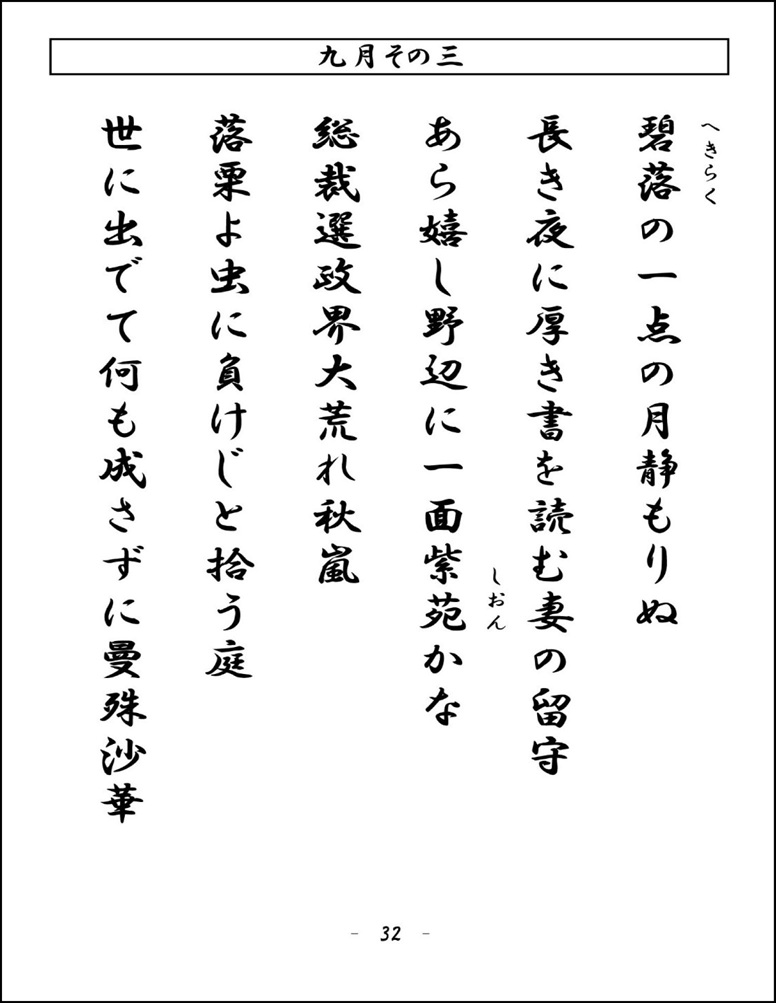 九月その三
へきらく
碧落の一点の月静もりぬ
長き夜に厚き書を読む妻の留守
しおん
あら嬉し野辺に一面紫苑かな
総裁選政界大荒れ秋嵐
落栗よ虫に負けじと拾う庭
世に出でて何も成さずに曼殊沙華
- 32 -